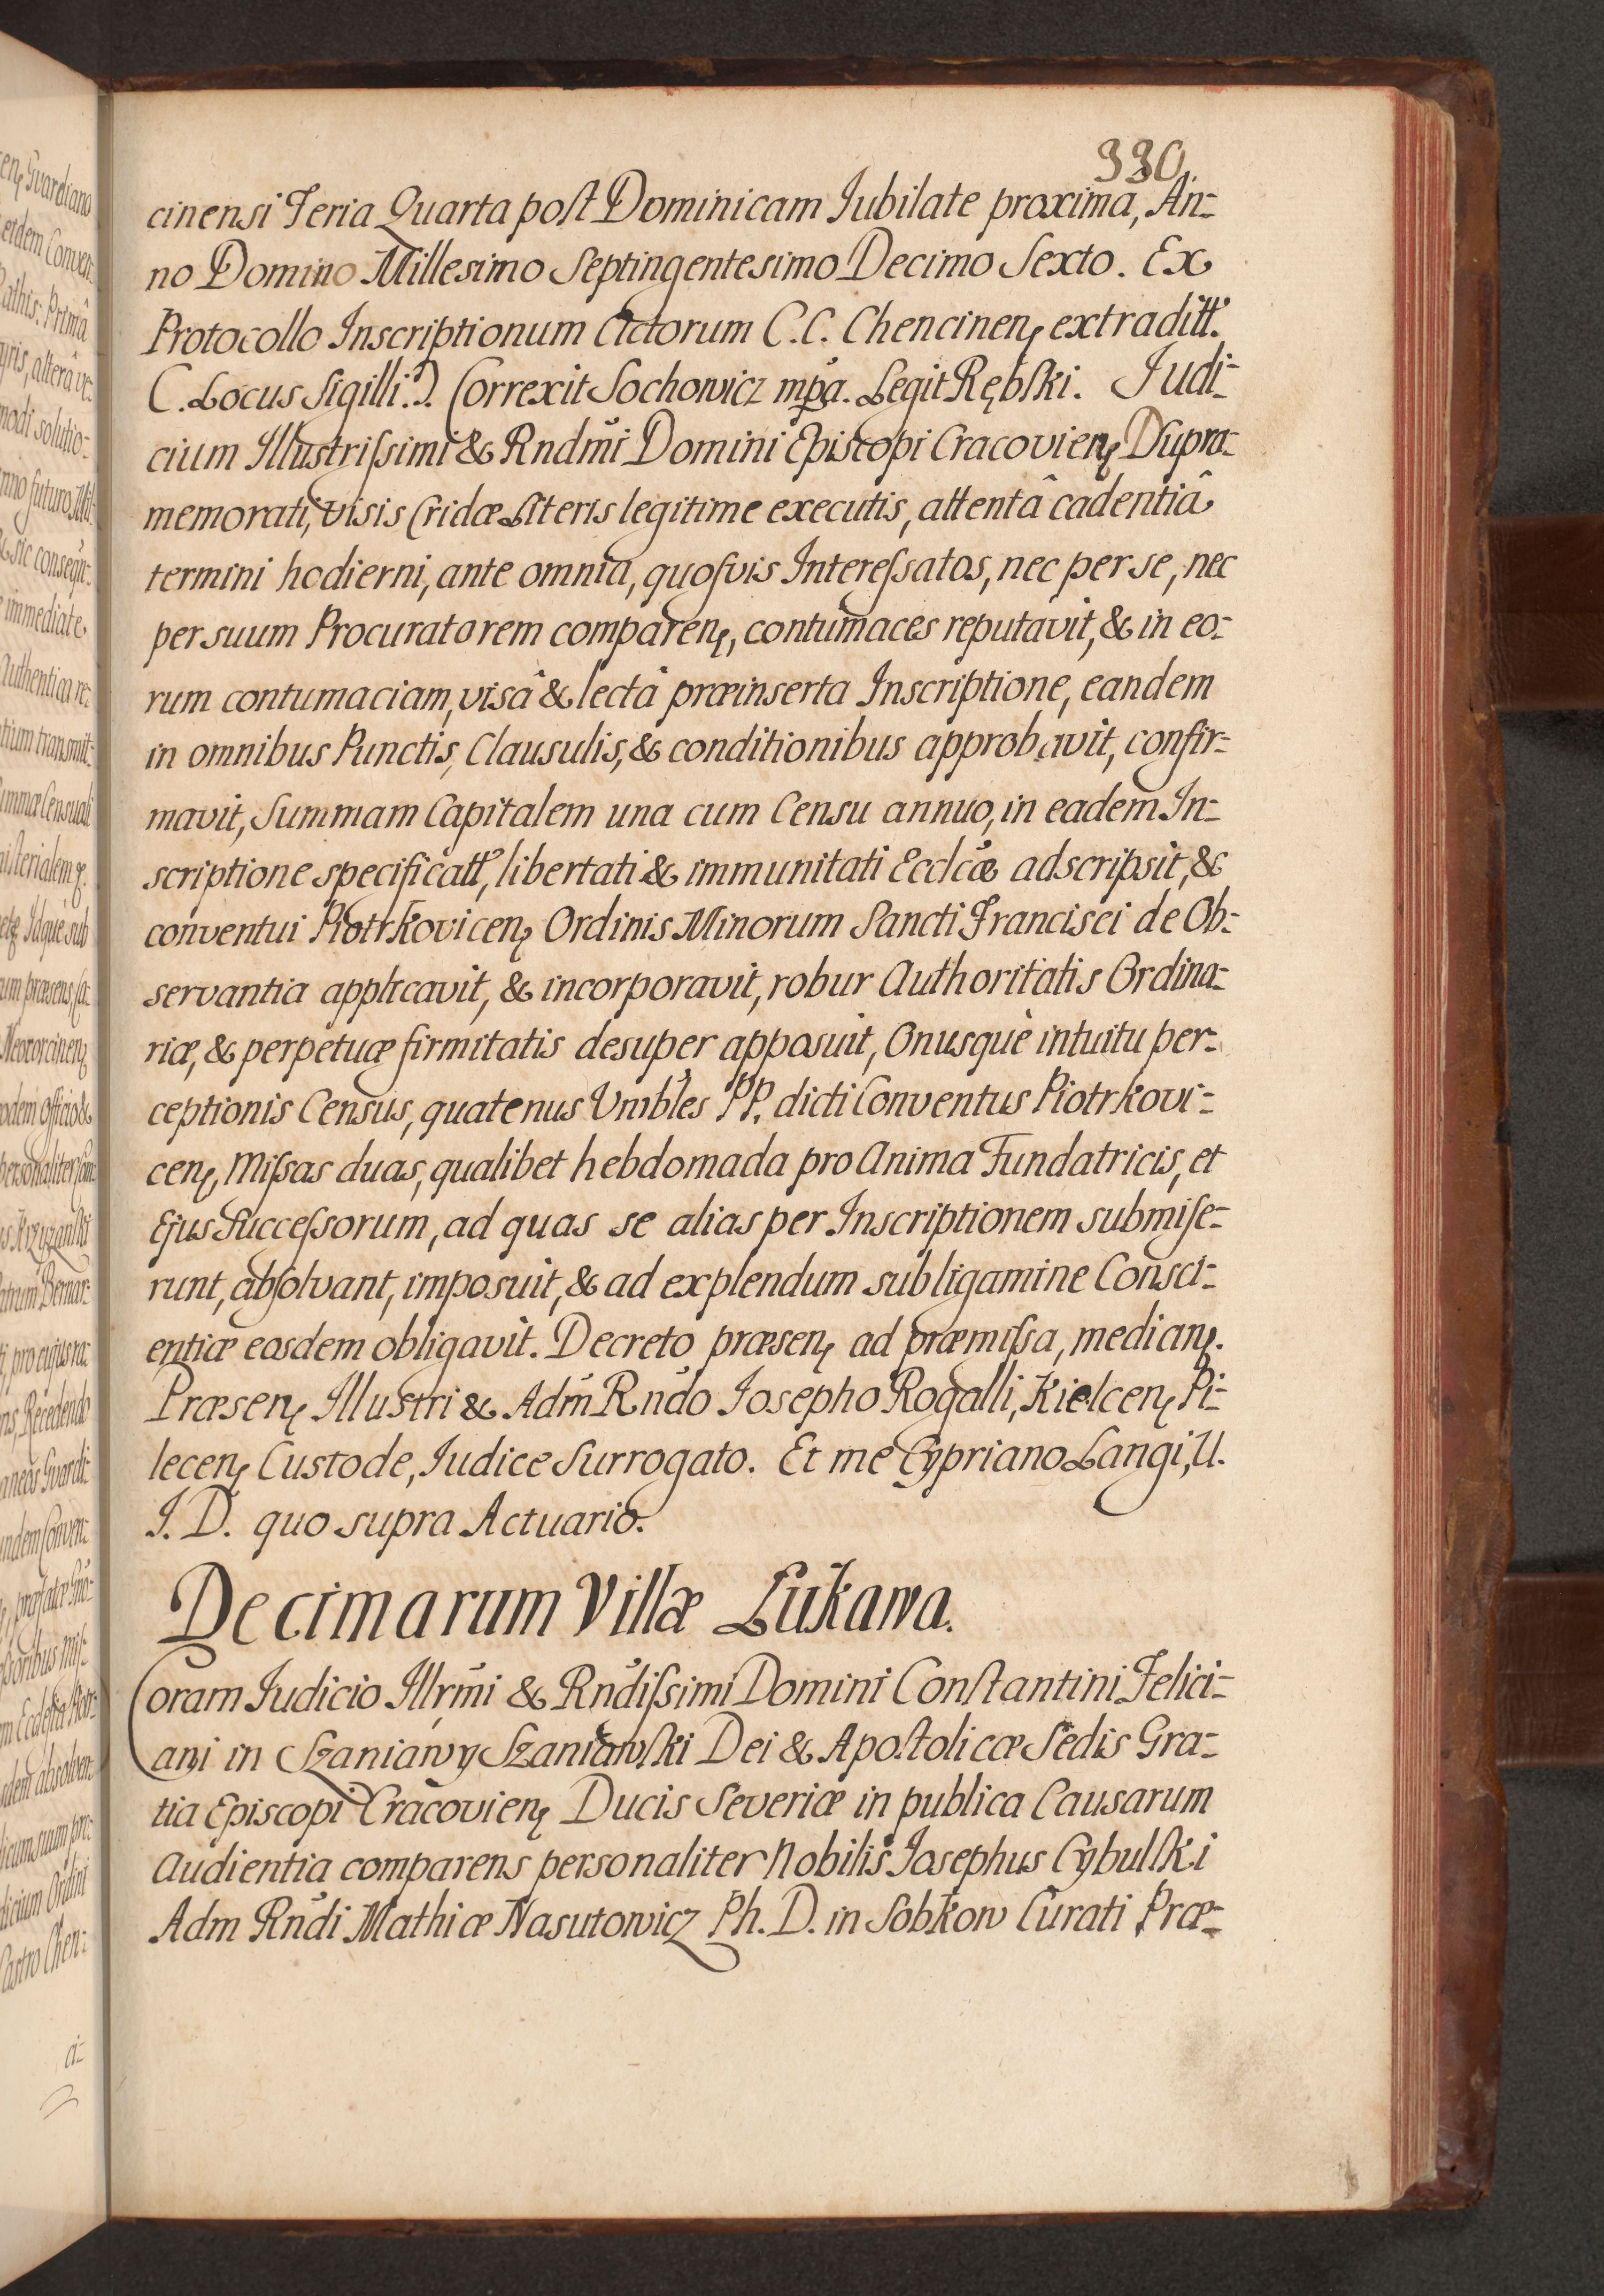 330
cinensi Feria Quarta post Dominicam Iubilate proxima, An-
no Domino Millesimo Septingentesimo Decimo Sexto. Ex
Protocollo Inscriptionum Actorum C.C. Chencinen, extraditt.
(.Locus Sigilli.) Correxit Sochowicz mpa. Legit Rębski. Judi-
cium Illustrissimi & Rndmi Domini Episcopi Cracovien, Dupra-
memorati, visis Cridæ Literis legitime executis, attentâ cadentiâ
termini hodierni, ante omnia, quosvis Interessatos, nec per se, nec
per suum Procuratorem comparen, contumaces reputavit, & in eo-
rum contumaciam, visâ & lectâ præinserta Inscriptione, eandem
in omnibus Punctis, Clausulis, & conditionibus approbavit, confir-
mavit, Summam Capitalem una cum Censu annuo, in eadem In-
scriptione specificatt, libertati & immunitati Ecclcæ adscripsit, &
conventui Piotrkovicen, Ordinis Minorum Sancti Francisci de Ob-
servantia applicavit, & incorporavit, robur Authoritatis Ordina-
riæ, & perpetuæ firmitatis desuper apposuit, Onusquè intuitu per-
ceptionis Census, quatenus Vnbles PP. dicti Conventus Piotrkovi-
cen, Missas duas, qualibet hebdomada pro Anima Fundatricis, et
Ejus Successorum, ad quas se alias per Inscriptionem submise-
runt, absolvant, imposuit, & ad explendum sub ligamine Consci-
entiæ eosdem obligavit. Decreto præsen, ad præmissa, median,.
Præsen, Illustri & Adm Rndo Iosepho Rogalli, Kielcen, Pi-
lecen, Custode, Iudice Surrogato. Et me Cypriano Langi, U.
I. D. quo supra Actuario.
Decimarum Villæ Łukawa.
Coram Iudicio Illrmi & Rndissimi Domini Constantini Felici-
ani in Szaniawy Szaniawski Dei & Apostolicæ Sedis Gra-
tia Episcopi Cracovien, Ducis Severiæ in publica Causarum
Audientia comparens personaliter Nobilis Iosephus Cybulski
Adm Rndi Mathiæ Nasutowicz Ph. D. in Sobkow Curati Præ-